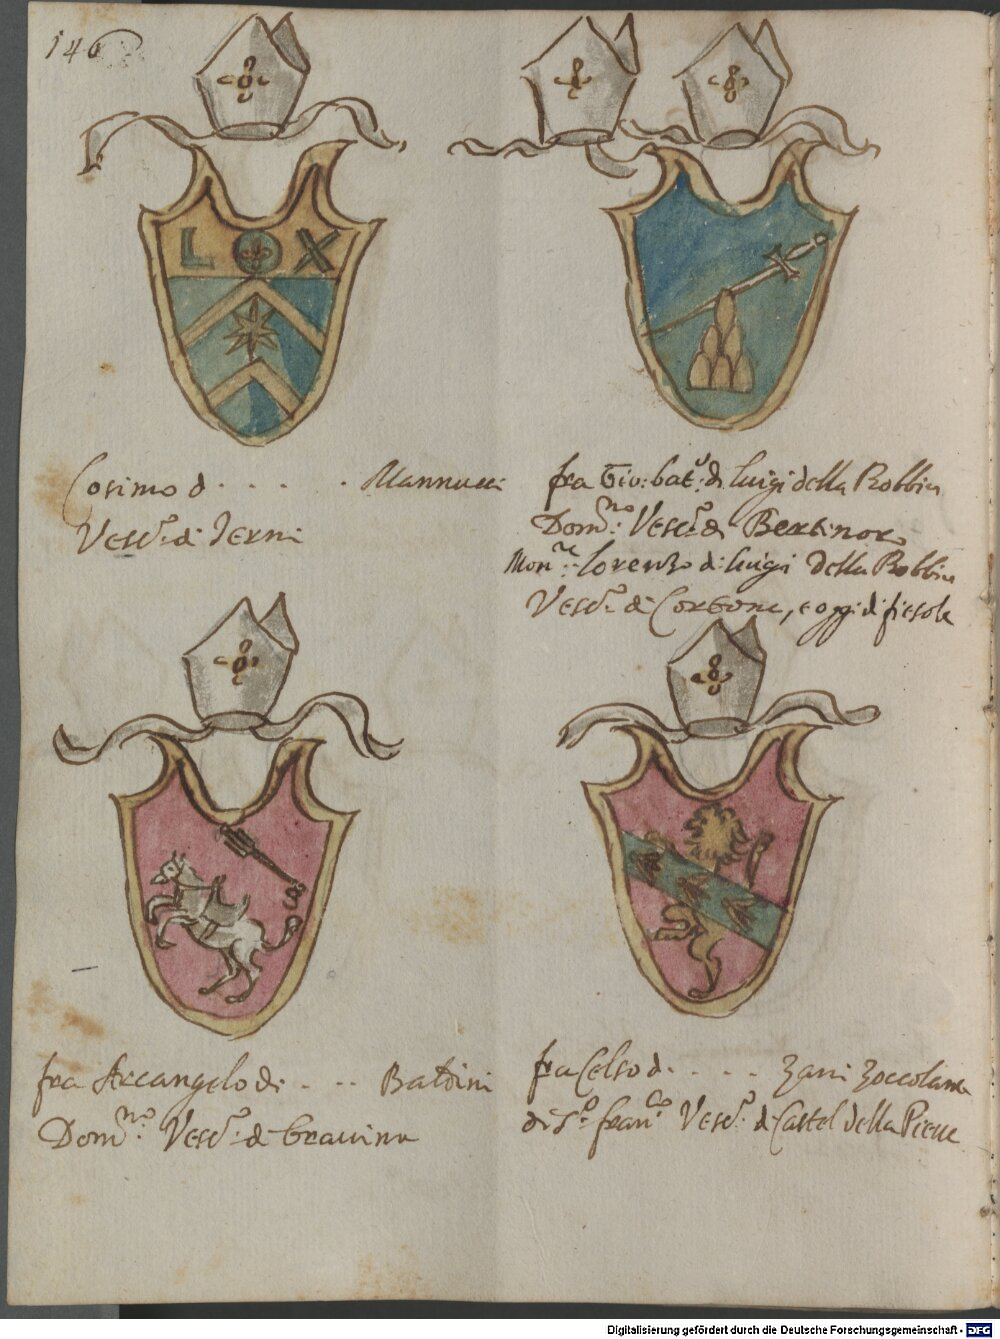 146
L O X
Cosimo d · · · · · Mannucci
Vesc.º di Terni
fra Gio: bat.ª di Luigi della Robbia
Dom.no Vesc.º di Bertinoro
Mon.re Lorenzo di Luigi Della Robbia
Vesc.º di Cortona, e oggi di fiesole
fra Arcangelo di · · · Baldini
Dom.no Vesc.º di Gravina
fra Celso d · · · · Zani Zoccolante
di S.º fran.co Vesc.º di Castel della Pieve
Digitalisierung gefördert durch die Deutsche Forschungsgemeinschaft - DFG